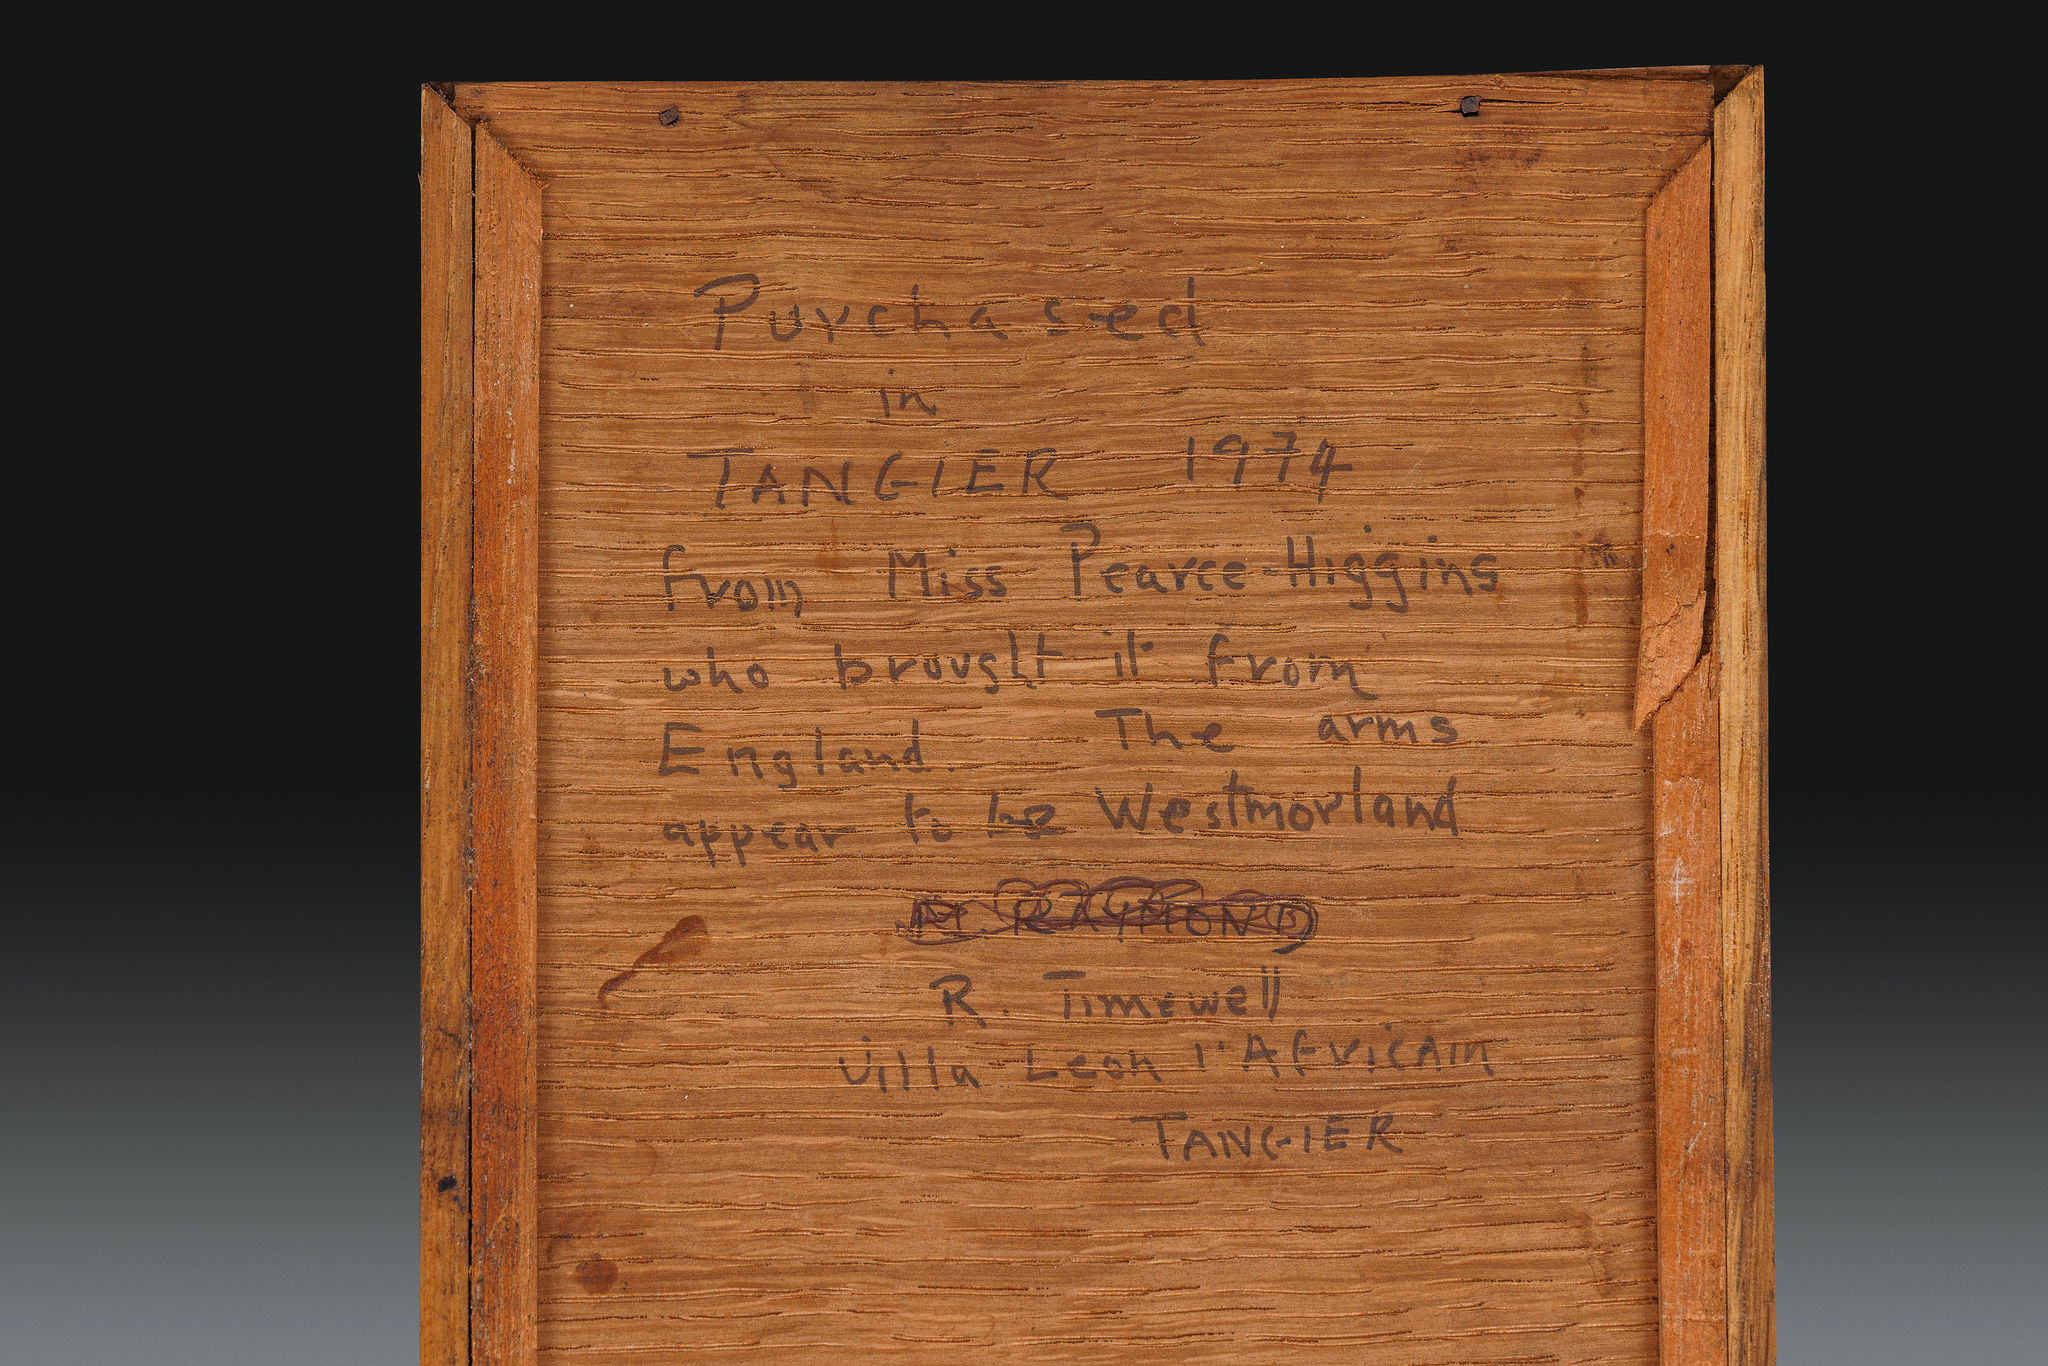 Purchased
in
TANGIER 1974
from Miss Pearce-Higgins
who brought it from
England. The arms
appear to be Westmorland
M. RAYMOND
R. Timewell
Villa Leon l'AFricAin
TANGIER